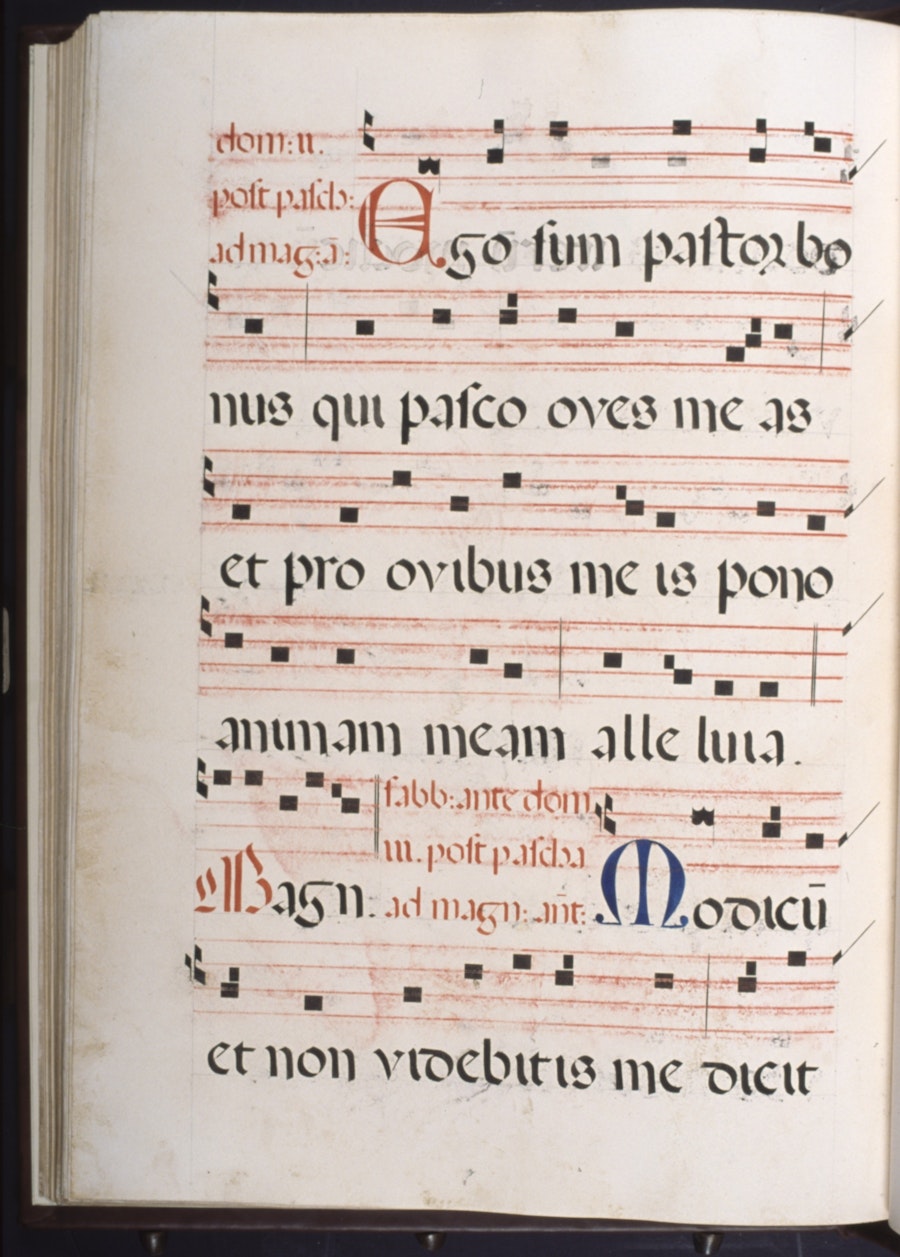 dom: II.
post pasch:
ad mag: ā:
Ego sum pastor bo
nus qui pasco oves me as
et pro ovibus me is pono
animam meam alle luia.
sabb: ante dom
III. post pascha
Magn. ad magn: añt: Modicū
et non videbitis me dicit